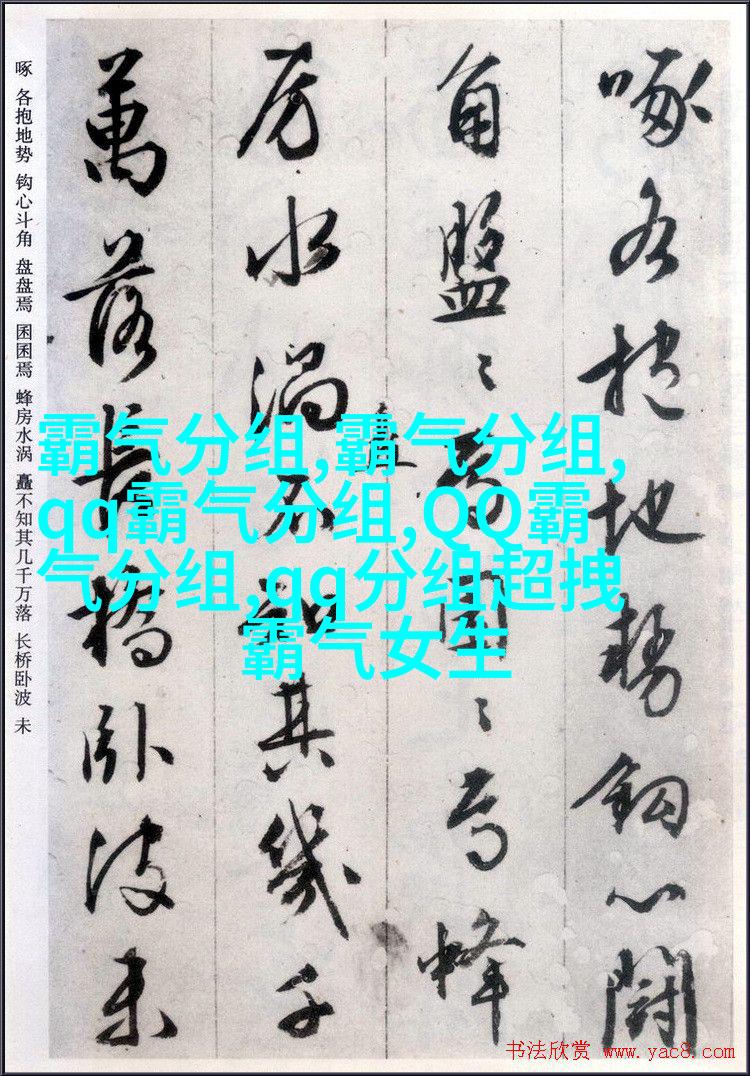 啄各抱地势钩心鬪
角盤〻焉囷〻焉蜂
房水渦矗不知其幾千
萬落長橋卧波未
啄 各抱地势 钩心斗角 盘盘焉 囷囷焉 蜂房水涡 矗不知其几千万落 长桥卧波 未
霸气分组,霸气分组,
qq霸气分组,QQ霸
气分组,qq分组超拽
霸气女生
书法欣赏 www.yac8.com